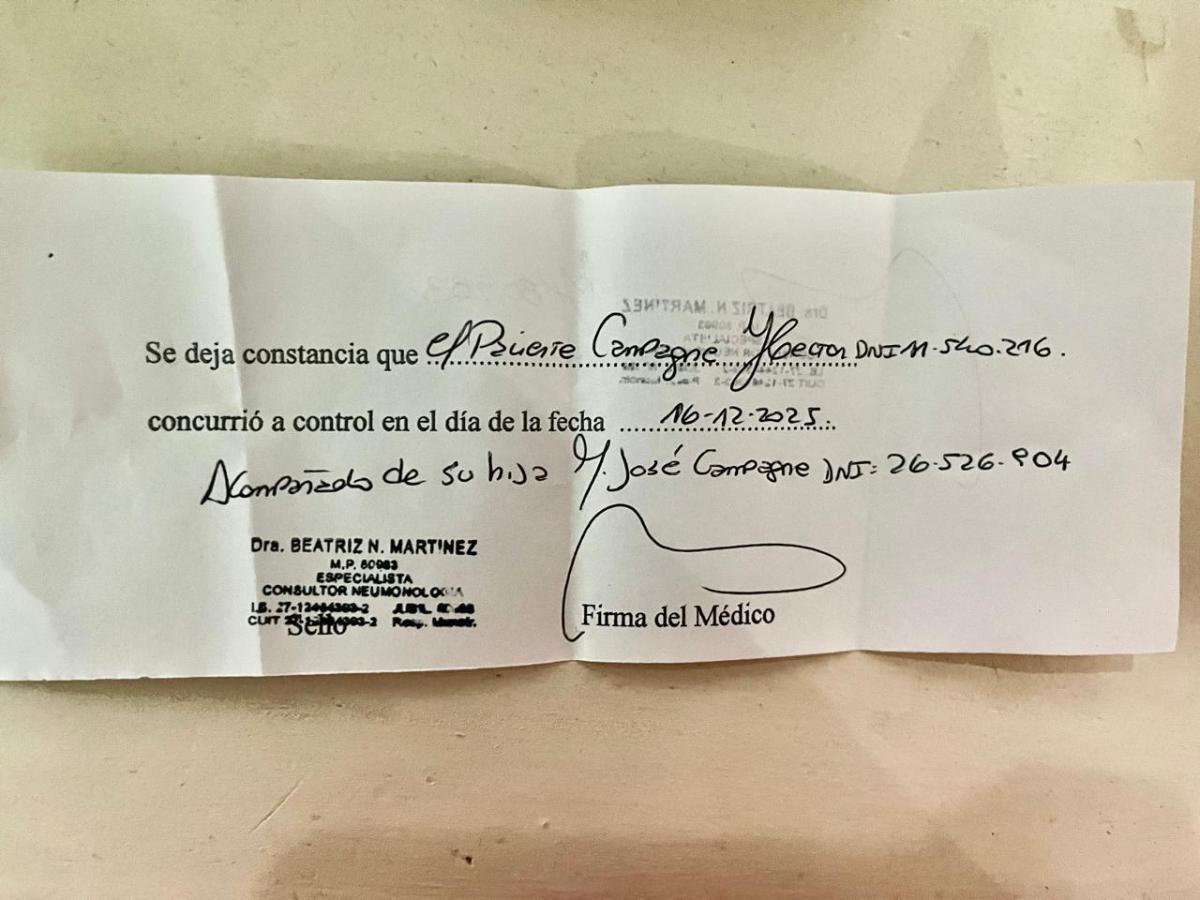 Se deja constancia que el Paciente Campagne Hector DNI 11.540.216.
concurrió a control en el día de la fecha 16-12-2025.
Acompañado de su hija M. José Campagne DNI: 26.526.904
Dra. BEATRIZ N. MARTINEZ
M.P. 60983
ESPECIALISTA
CONSULTOR NEUMONOLOGIA
I.B.
CUIT
Sello
Firma del Médico